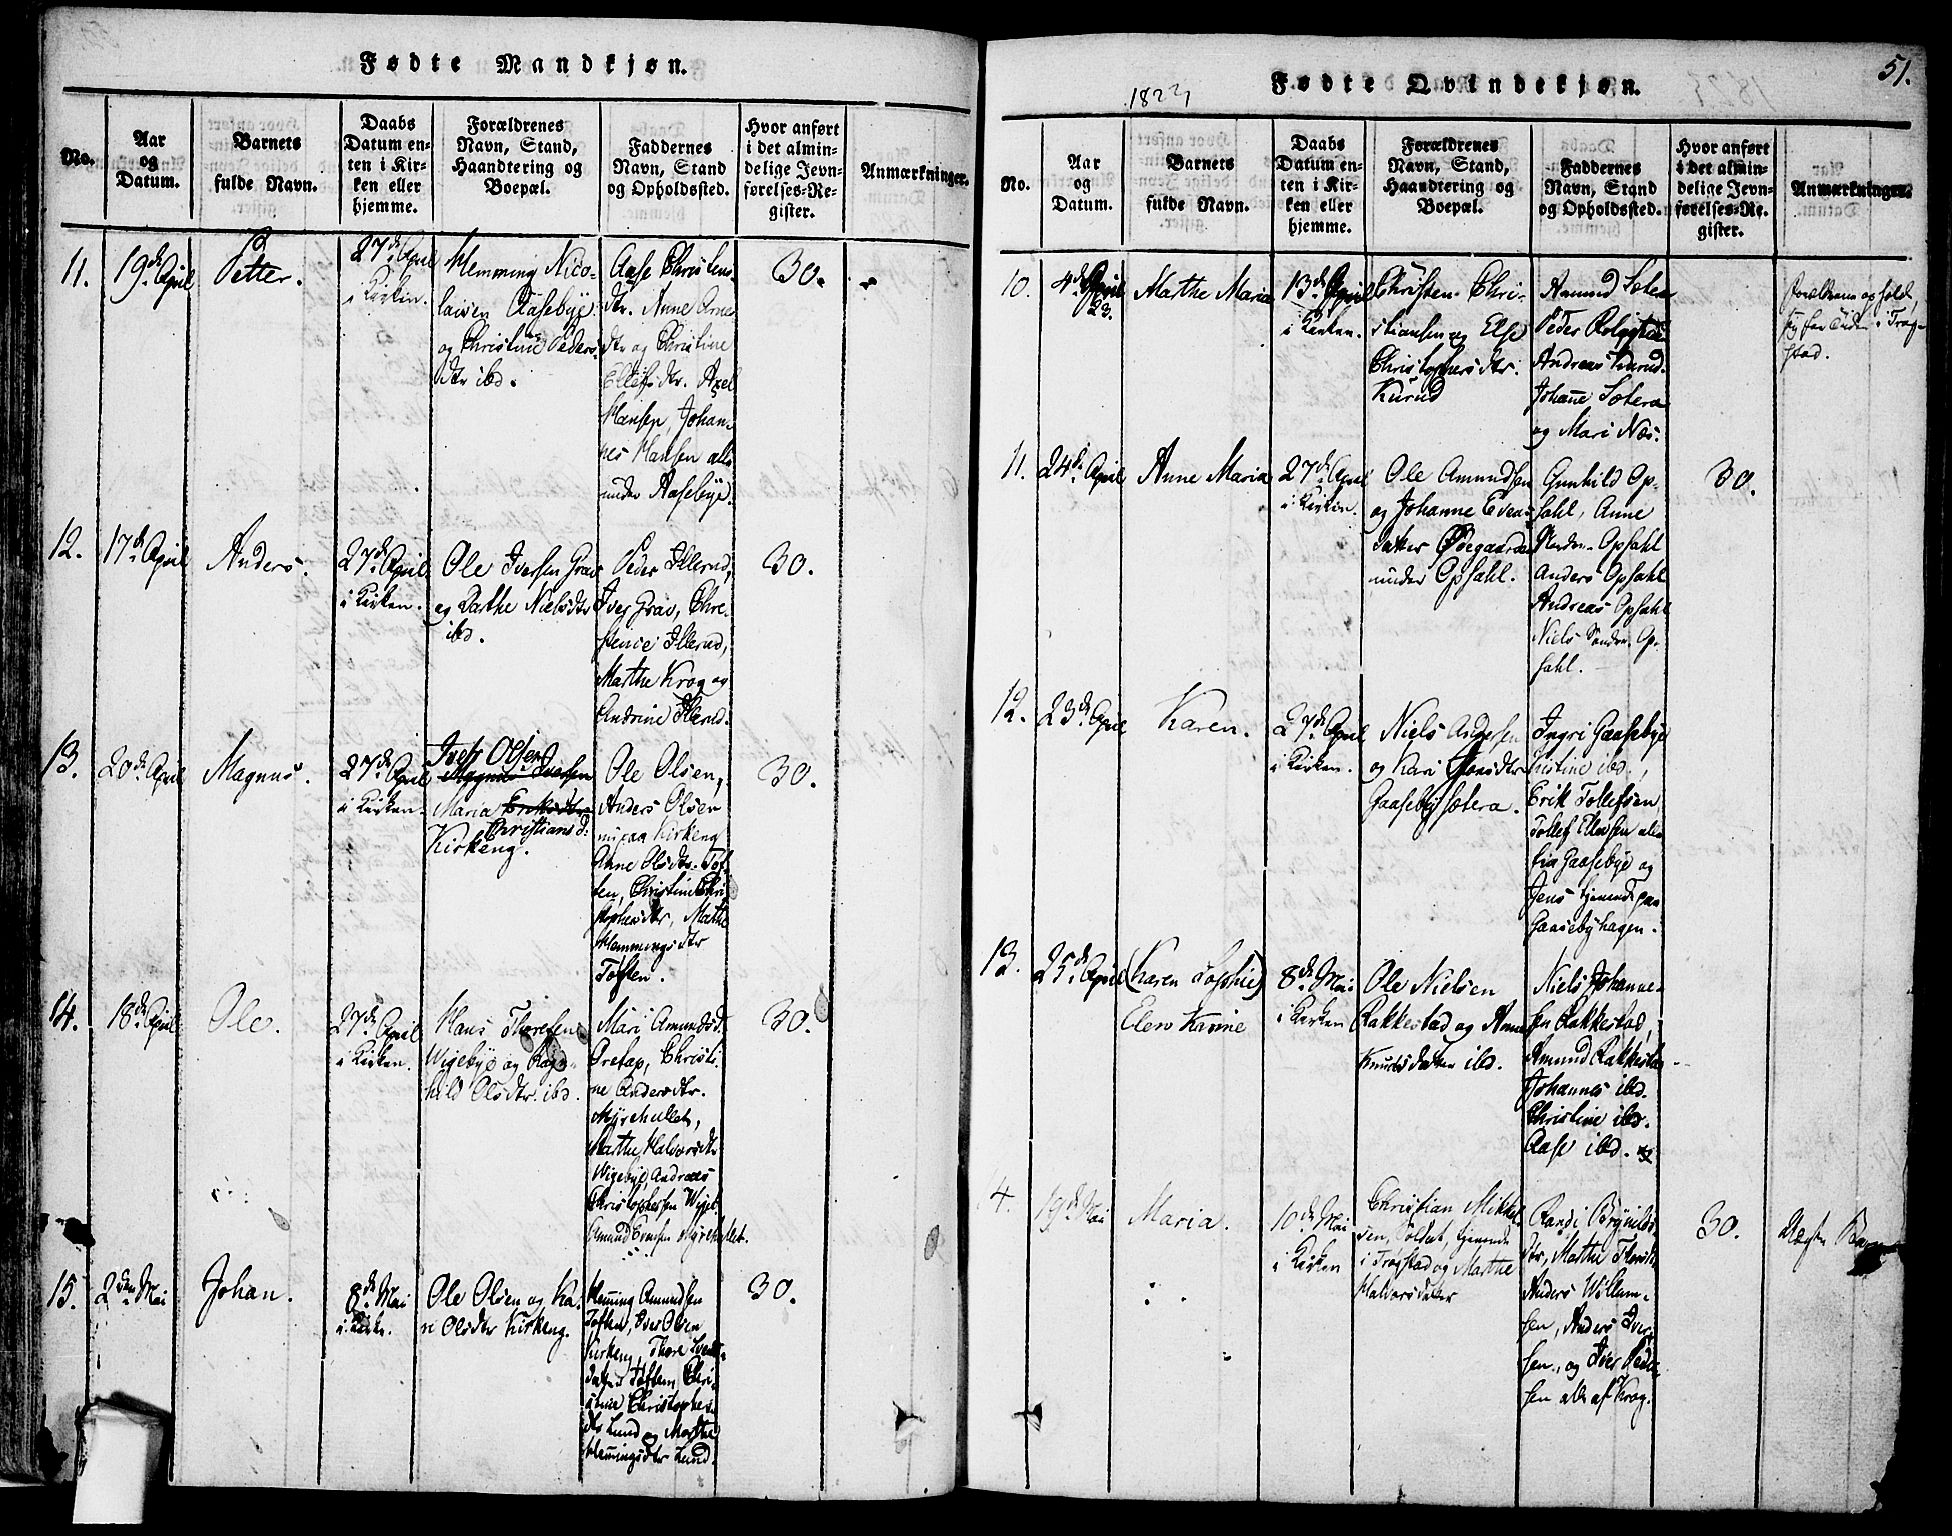 Fødte Mandkjøn.
No.
Aar
og
Datum.
Barnets
fulde Navn.
Daabs
Datum en-
ten i Kir-
ken eller
hjemme.
Forældrenes
Navn, Stand,
Haandtering og
Boepæl.
Faddernes
Navn, Stand
og Opholdssted.
Hvor anført
i det almin-
delige Jevn-
førelses-Re-
gister.
Anmærkninger.
11.
19de April
Petter.
27de April
i Kirken.
Hemming Nico-
laisen Aasebye
og Christine Peders
dtr ibd.
Aase Christens
dtr. Anne Arne
dtr og Christine
Ellefsdtr. Axel
Hansen, Johan-
nes Hansen alle
under Aasebye.
30.
12.
17de April
Anders.
27de April
i Kirken.
Ole Iversen Grav
og Dorthe Nielsdtr
ibd.
Peder Illerud,
Iver Grav, Chri-
stence Illerud,
Marthe Krog og
Andrine Illerud.
30.
13.
20de April
Magnus.
27de April
i Kirken.
Iver Olsen
Magnus Iversen
Maria
Christiansd:
Kirkeng.
Ole Olsen,
Anders Olsen
paa Kirkeng
Anne Olsdtr. Tof-
ten, Christine Chri
stophersdtr, Marthe
Hemmingsdtr
Toften.
30.
14.
18de April
Ole.
27de April
i Kirken.
Hans Thoresen
Wigebye og Ragn-
hild Olsdtr. ibd.
Mari Amundsd.
Oretap, Christi-
ne Andersdtr.
Myrehullet,
Marthe Halvorsdtr
Wigebye, Andreas
Christophersen Wigeb.
Amund Evensen Myrehullet.
30.
15.
2den Mai
Johan.
8de Mai
i Kirke.
Ole Olsen og Ka-
ri Olsdtr Kirkeng.
Hemming Amundsen
Toften, Iver Olsen
Kirkeng, Thore Svends-
datter Toften, Chri-
stine Christophers
dtr Lund og Marthe
Hemmingsdtr Lund.
30.
51.
1823
Fødte Qvindekjøn.
No.
Aar
og
Datum.
Barnets
fulde Navn.
Daabs
Datum en-
ten i Kir-
ken eller
hjemme.
Forældrenes
Navn, Stand,
Haandtering og
Boepæl.
Faddernes
Navn, Stand
og Opholdssted.
Hvor anført
i det almin-
delige Jevn-
førelses-Re-
gister.
Anmærkninger.
10.
4de April
23.
Marthe Maria
13de April
i Kirken.
Christen Chri-
stiansen og Else
Christophersdtr.
Kurud
Amund Sotera
Peder Rolgstad
Andreas Kurud.
Johanne Sotera
og Mari Næs.
Forældrene opholde
sig for Tiden i Trøg-
stad.
11.
24de April
Anne Maria
27de April
i Kirken.
Ole Amundsen
og Johanne Evens-
datter Ødegaarden
under Opsahl.
Gunhild Op-
sahl, Anne
Opsahl
Anders Opsahl
Andreas Opsahl
Niels Søndre Op-
sahl.
30.
12.
23de April
Karen.
27de April
i Kirken.
Niels Andersen
og Kari Jonsdtr
Gaasebysotera.
Ingri Gaasebye
Kristine ibd.,
Erik Tollefsen
Tollef Ellevsen alle
fra Gaasebye og
Jens tjenende paa
Gaasebyhagen.
13.
25de April
(Karen Sophie)
Elen Karine
8de Mai
i Kirken
Ole Nielsen
Rakkestad og Anne
Knudsdatter ibd.
Niels Johanne-
sen Rakkestad,
Amund Rakkestad
Johannes ibd.
Christine ibd.
Aase ibd.
14.
19de Mai
Maria.
10de Mai
i Kirken
Christian Mikkel-
sen, Soldat, tjenende
i Trøgstad og Marthe
Halvorsdatter
Randi Brynilds-
dtr, Marthe
Anders Willum-
sen, Anders Iver-
sen, og Iver Peder-
sen alle af Krog.
30.
Uægte Barn